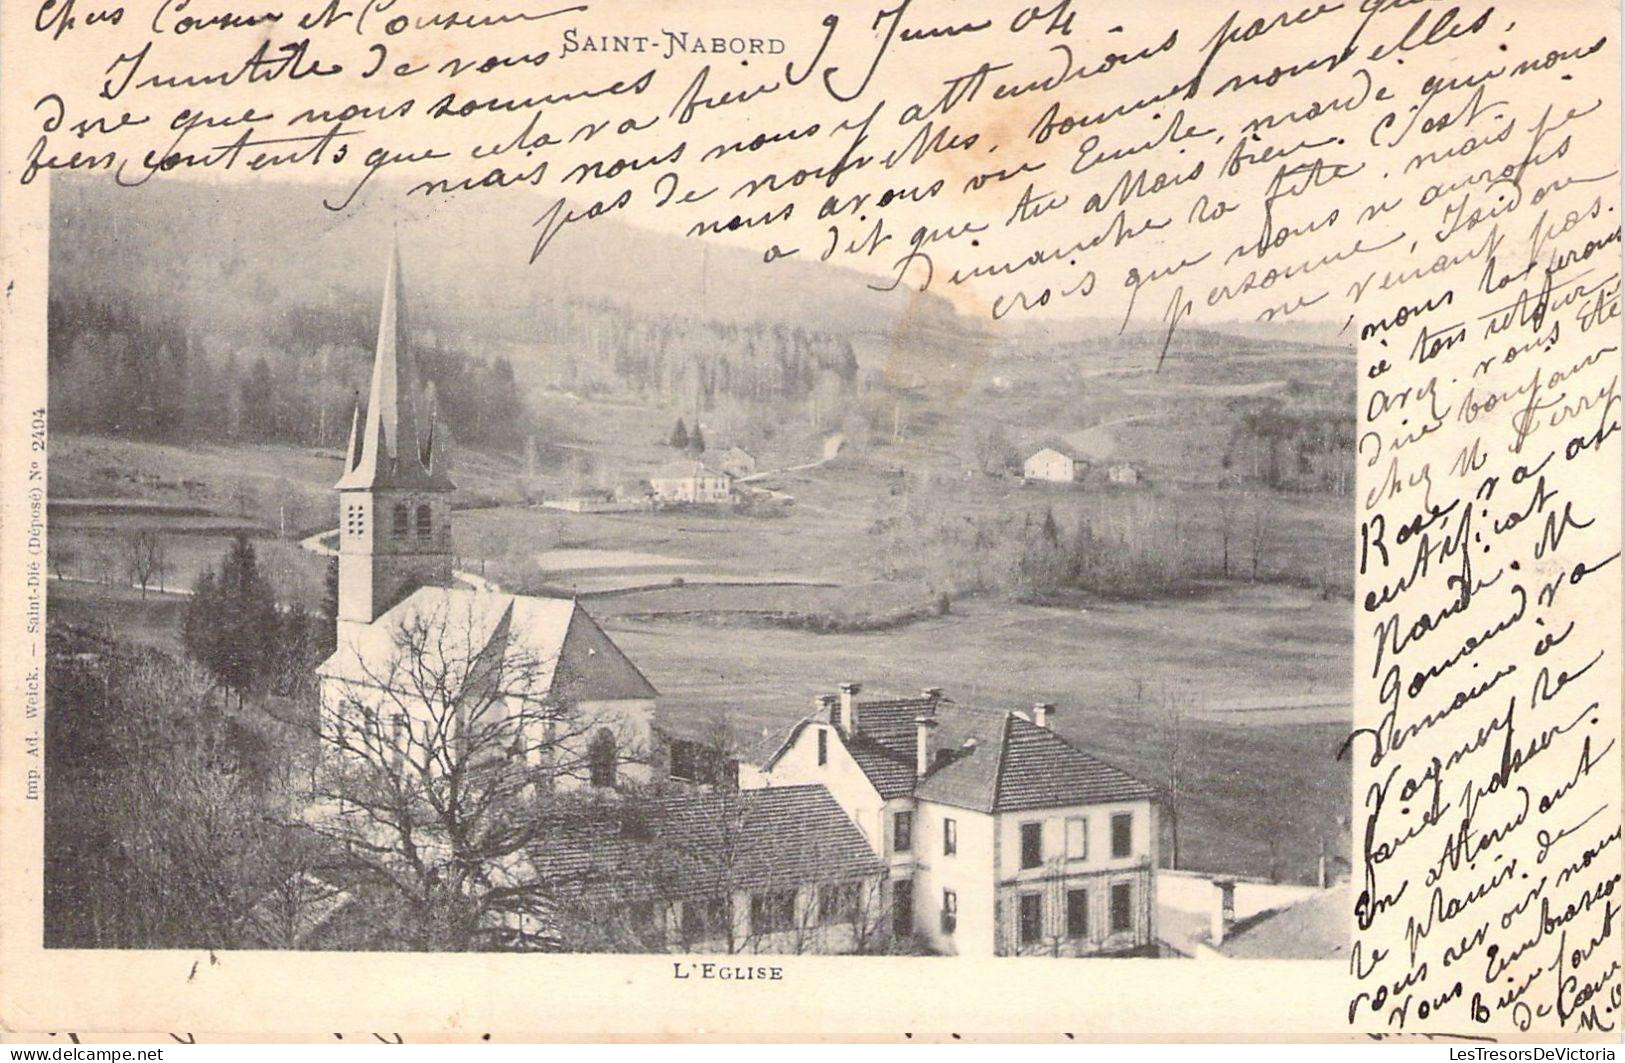 Chers Cousin et Cousine
SAINT-NABORD
9 Juin 04
Inutile de vous
dire que nous sommes
bien contents que cela va bien
mais nous nous y attendions parce que
pas de nouvelles, bonnes nouvelles,
nous avons vu Emile, mardi qui nous
a dit que tu allais bien. C'est
dimanche la fête, mais je
crois que nous n'aurons
personne, Isidore
ne venant pas.
nous la ferons
à ton retour
avez vous été
dire bonjour
chez M Ferry
Rose va au
certificat
Mardi. M
va
demain à
Vagney la
faire passer.
En attendant
le plaisir de
vous revoir nous
vous Embrasso
Bien fort
de Coeur
M.
Imp. Ad. Weick. — Saint-Dié (Déposé) No 2494
L'EGLISE
LesTresorsDeVictoria